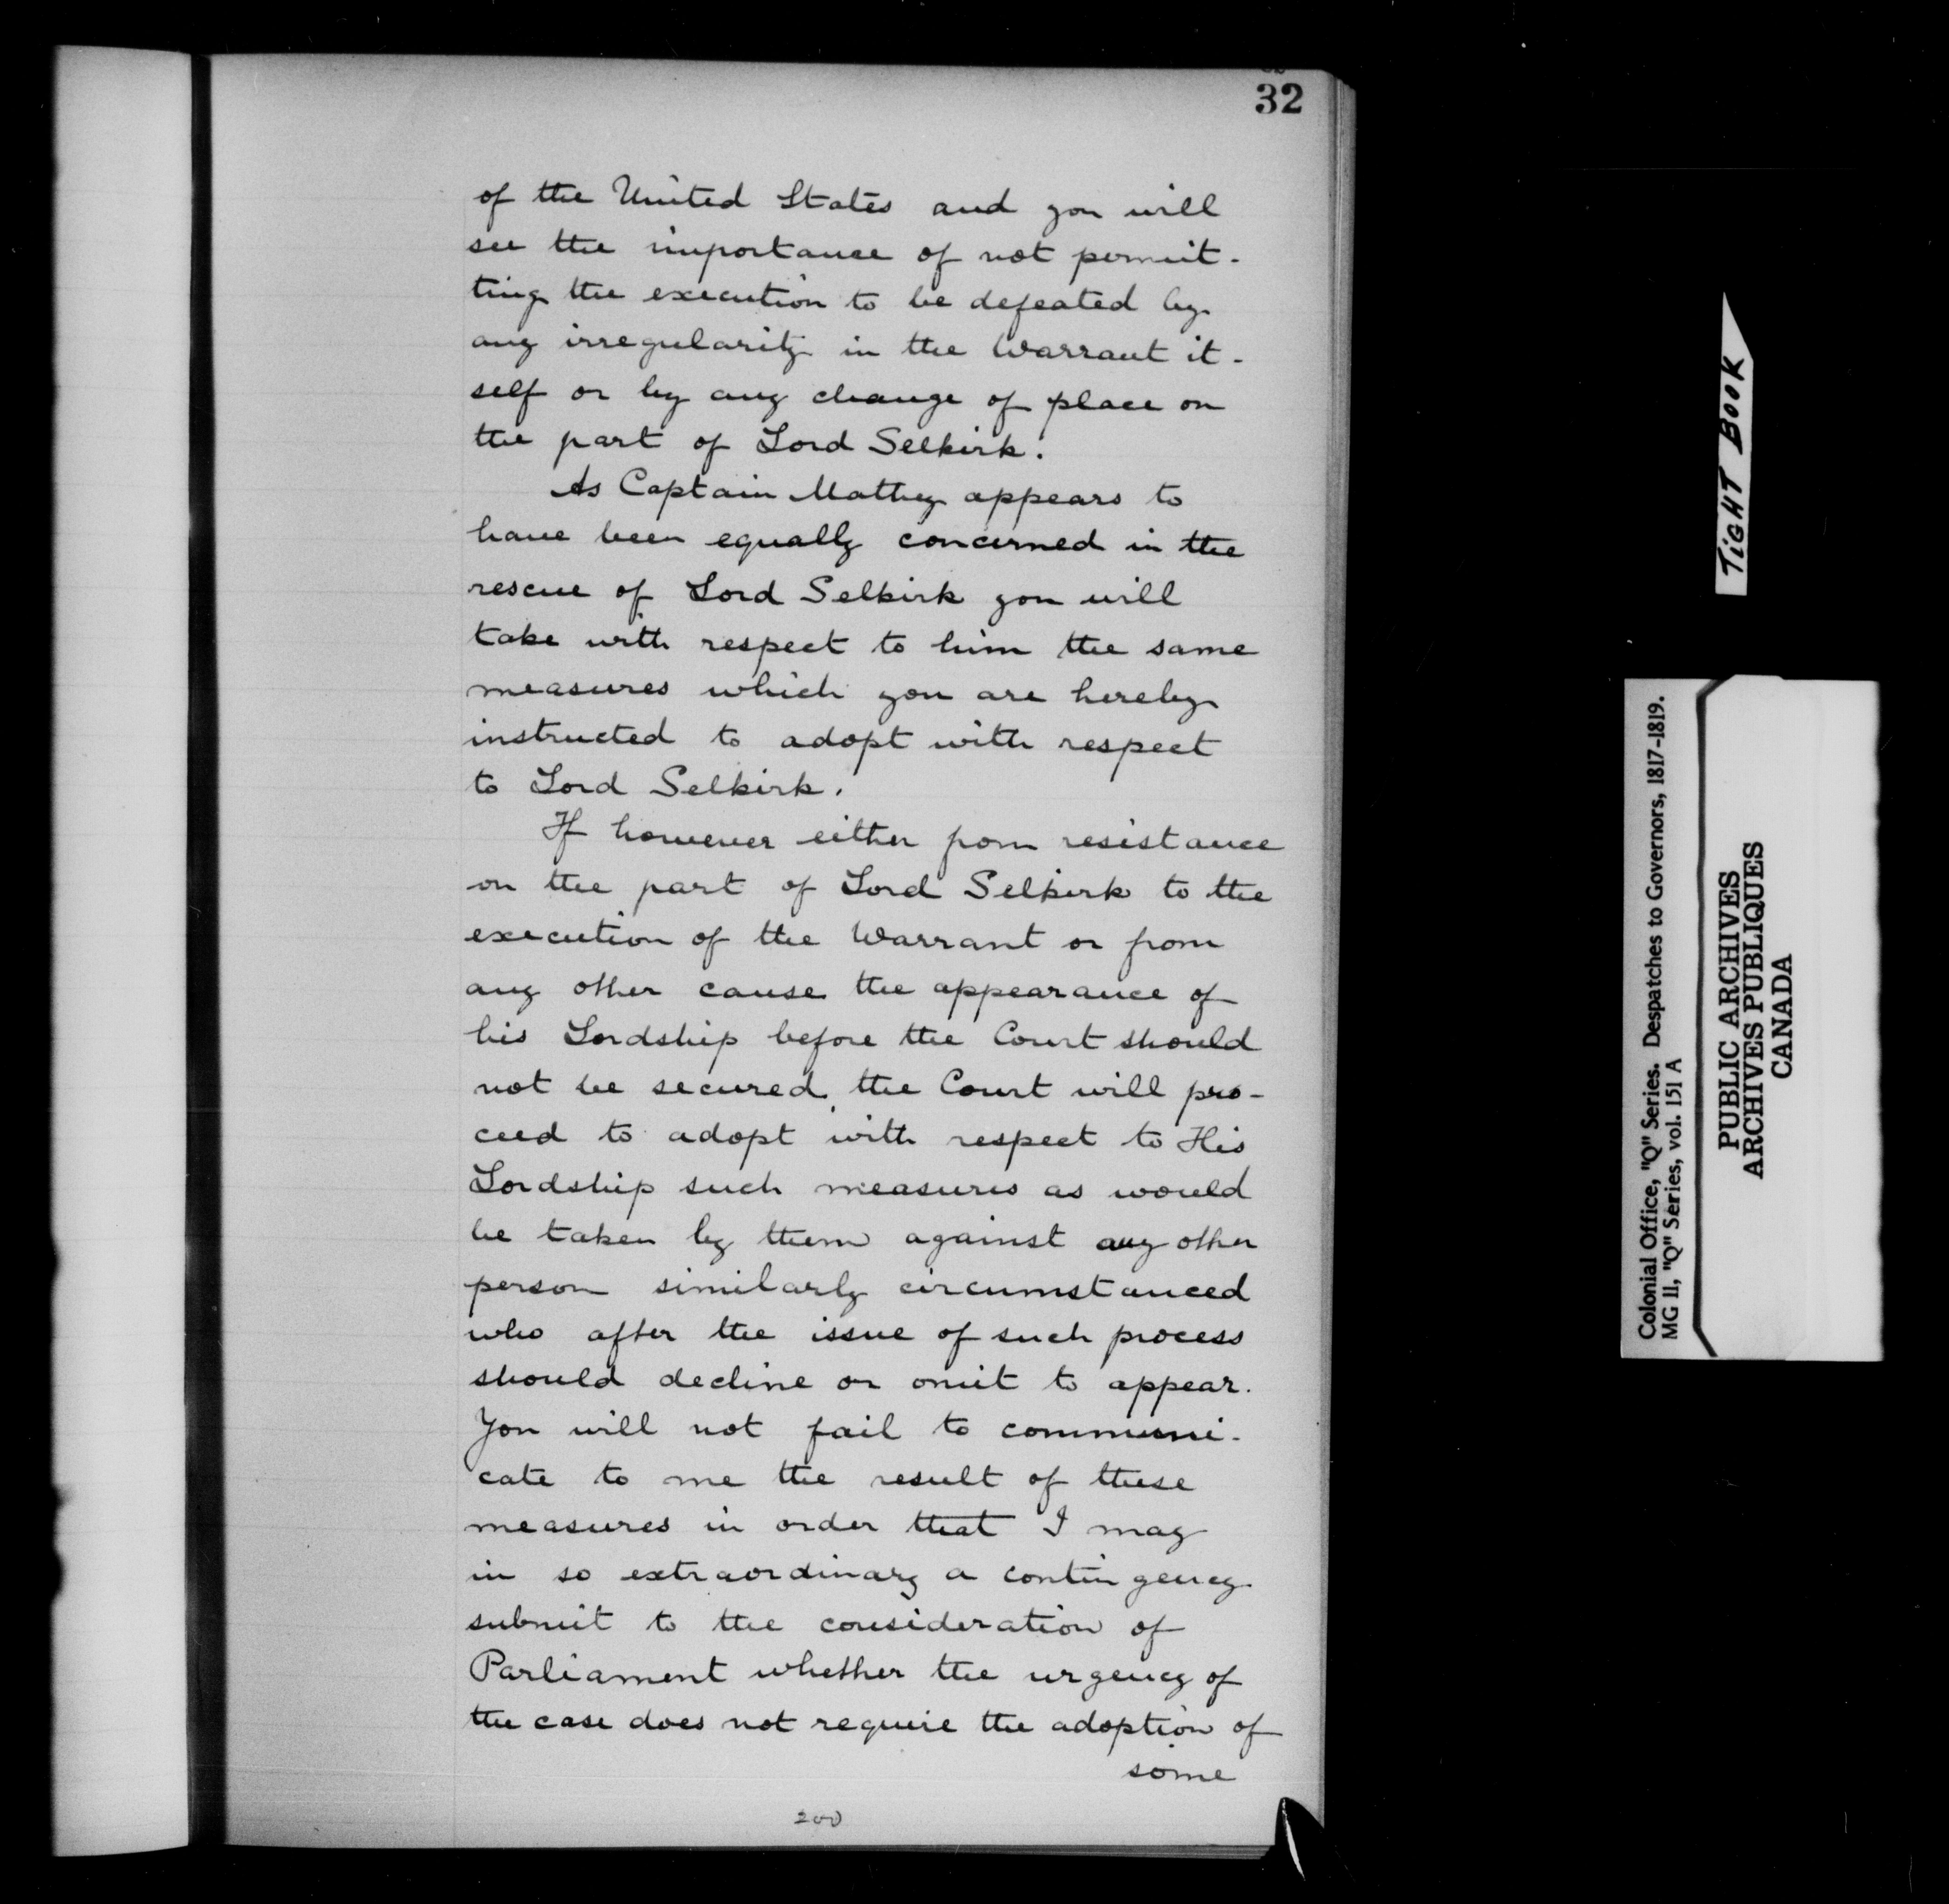 32
of the United States and you will
see the importance of not permit-
ting the execution to be defeated by
any irregularity in the Warrant it-
self or by any change of place on
the part of Lord Selkirk.
As Captain Mathey appears to
have been equally concerned in the
rescue of Lord Selkirk you will
take with respect to him the same
measures which you are hereby
instructed to adopt with respect
to Lord Selkirk.
If however either from resistance
on the part of Lord Selkirk to the
execution of the Warrant or from
any other cause the appearance of
his Lordship before the Court should
not be secured, the Court will pro-
ceed to adopt with respect to His
Lordship such measures as would
be taken by them against any other
person similarly circumstanced
who after the issue of such process
should decline or omit to appear.
You will not fail to communi-
cate to me the result of these
measures in order that I may
in so extraordinary a contingency
submit to the consideration of
Parliament whether the urgency of
the case does not require the adoption of
some
200
TIGHT BOOK
Colonial Office, "Q" Series. Despatches to Governors, 1817-1819.
MG 11, "Q" Series, vol. 151 A
PUBLIC ARCHIVES
ARCHIVES PUBLIQUES
CANADA